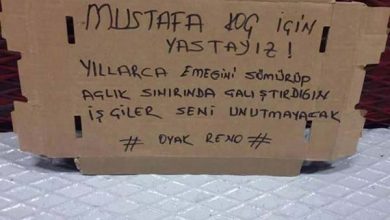 MUSTAFA KOÇ İÇİN
YASTAYIZ!
YILLARCA EMEGİNİ SÖMÜRÜP
AÇLIK SINIRINDA ÇALIŞTIRDIGIN
İŞÇİLER SENİ UNUTMAYACAK
# OYAK RENO #